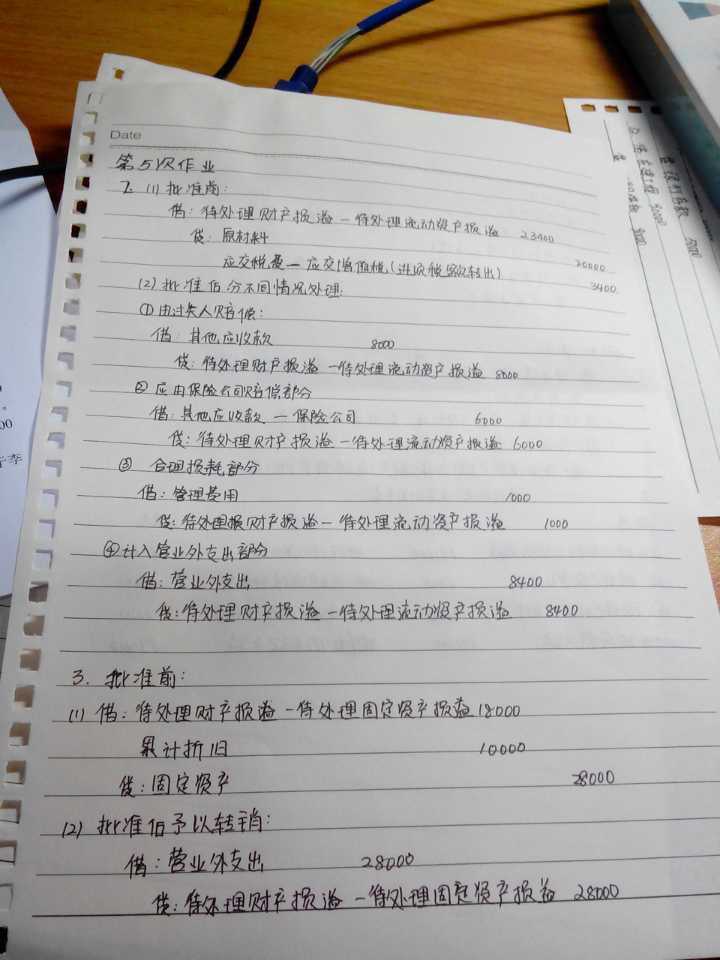 Date
第5次作业
2. (1) 批准前:
借: 待处理财产损溢—待处理流动资产损溢 23400
贷: 原材料 20000
应交税费—应交增值税(进项税额转出) 3400
(2) 批准后分不同情况处理:
①由过失人赔偿:
借: 其他应收款 8000
贷: 待处理财产损溢—待处理流动资产损溢 8000
② 应由保险公司赔偿部分
借: 其他应收款—保险公司 6000
贷: 待处理财产损溢—待处理流动资产损溢 6000
③ 合理损耗部分
借: 管理费用 1000
贷: 待处理损财产损溢—待处理流动资产损溢 1000
④计入营业外支出部分
借: 营业外支出 8400
贷: 待处理财产损溢—待处理流动资产损溢 8400
3. 批准前:
(1) 借: 待处理财产损溢—待处理固定资产损溢 18000
累计折旧 10000
贷: 固定资产 28000
(2) 批准后予以转销:
借: 营业外支出 28000
贷: 待处理财产损溢—待处理固定资产损益 28000